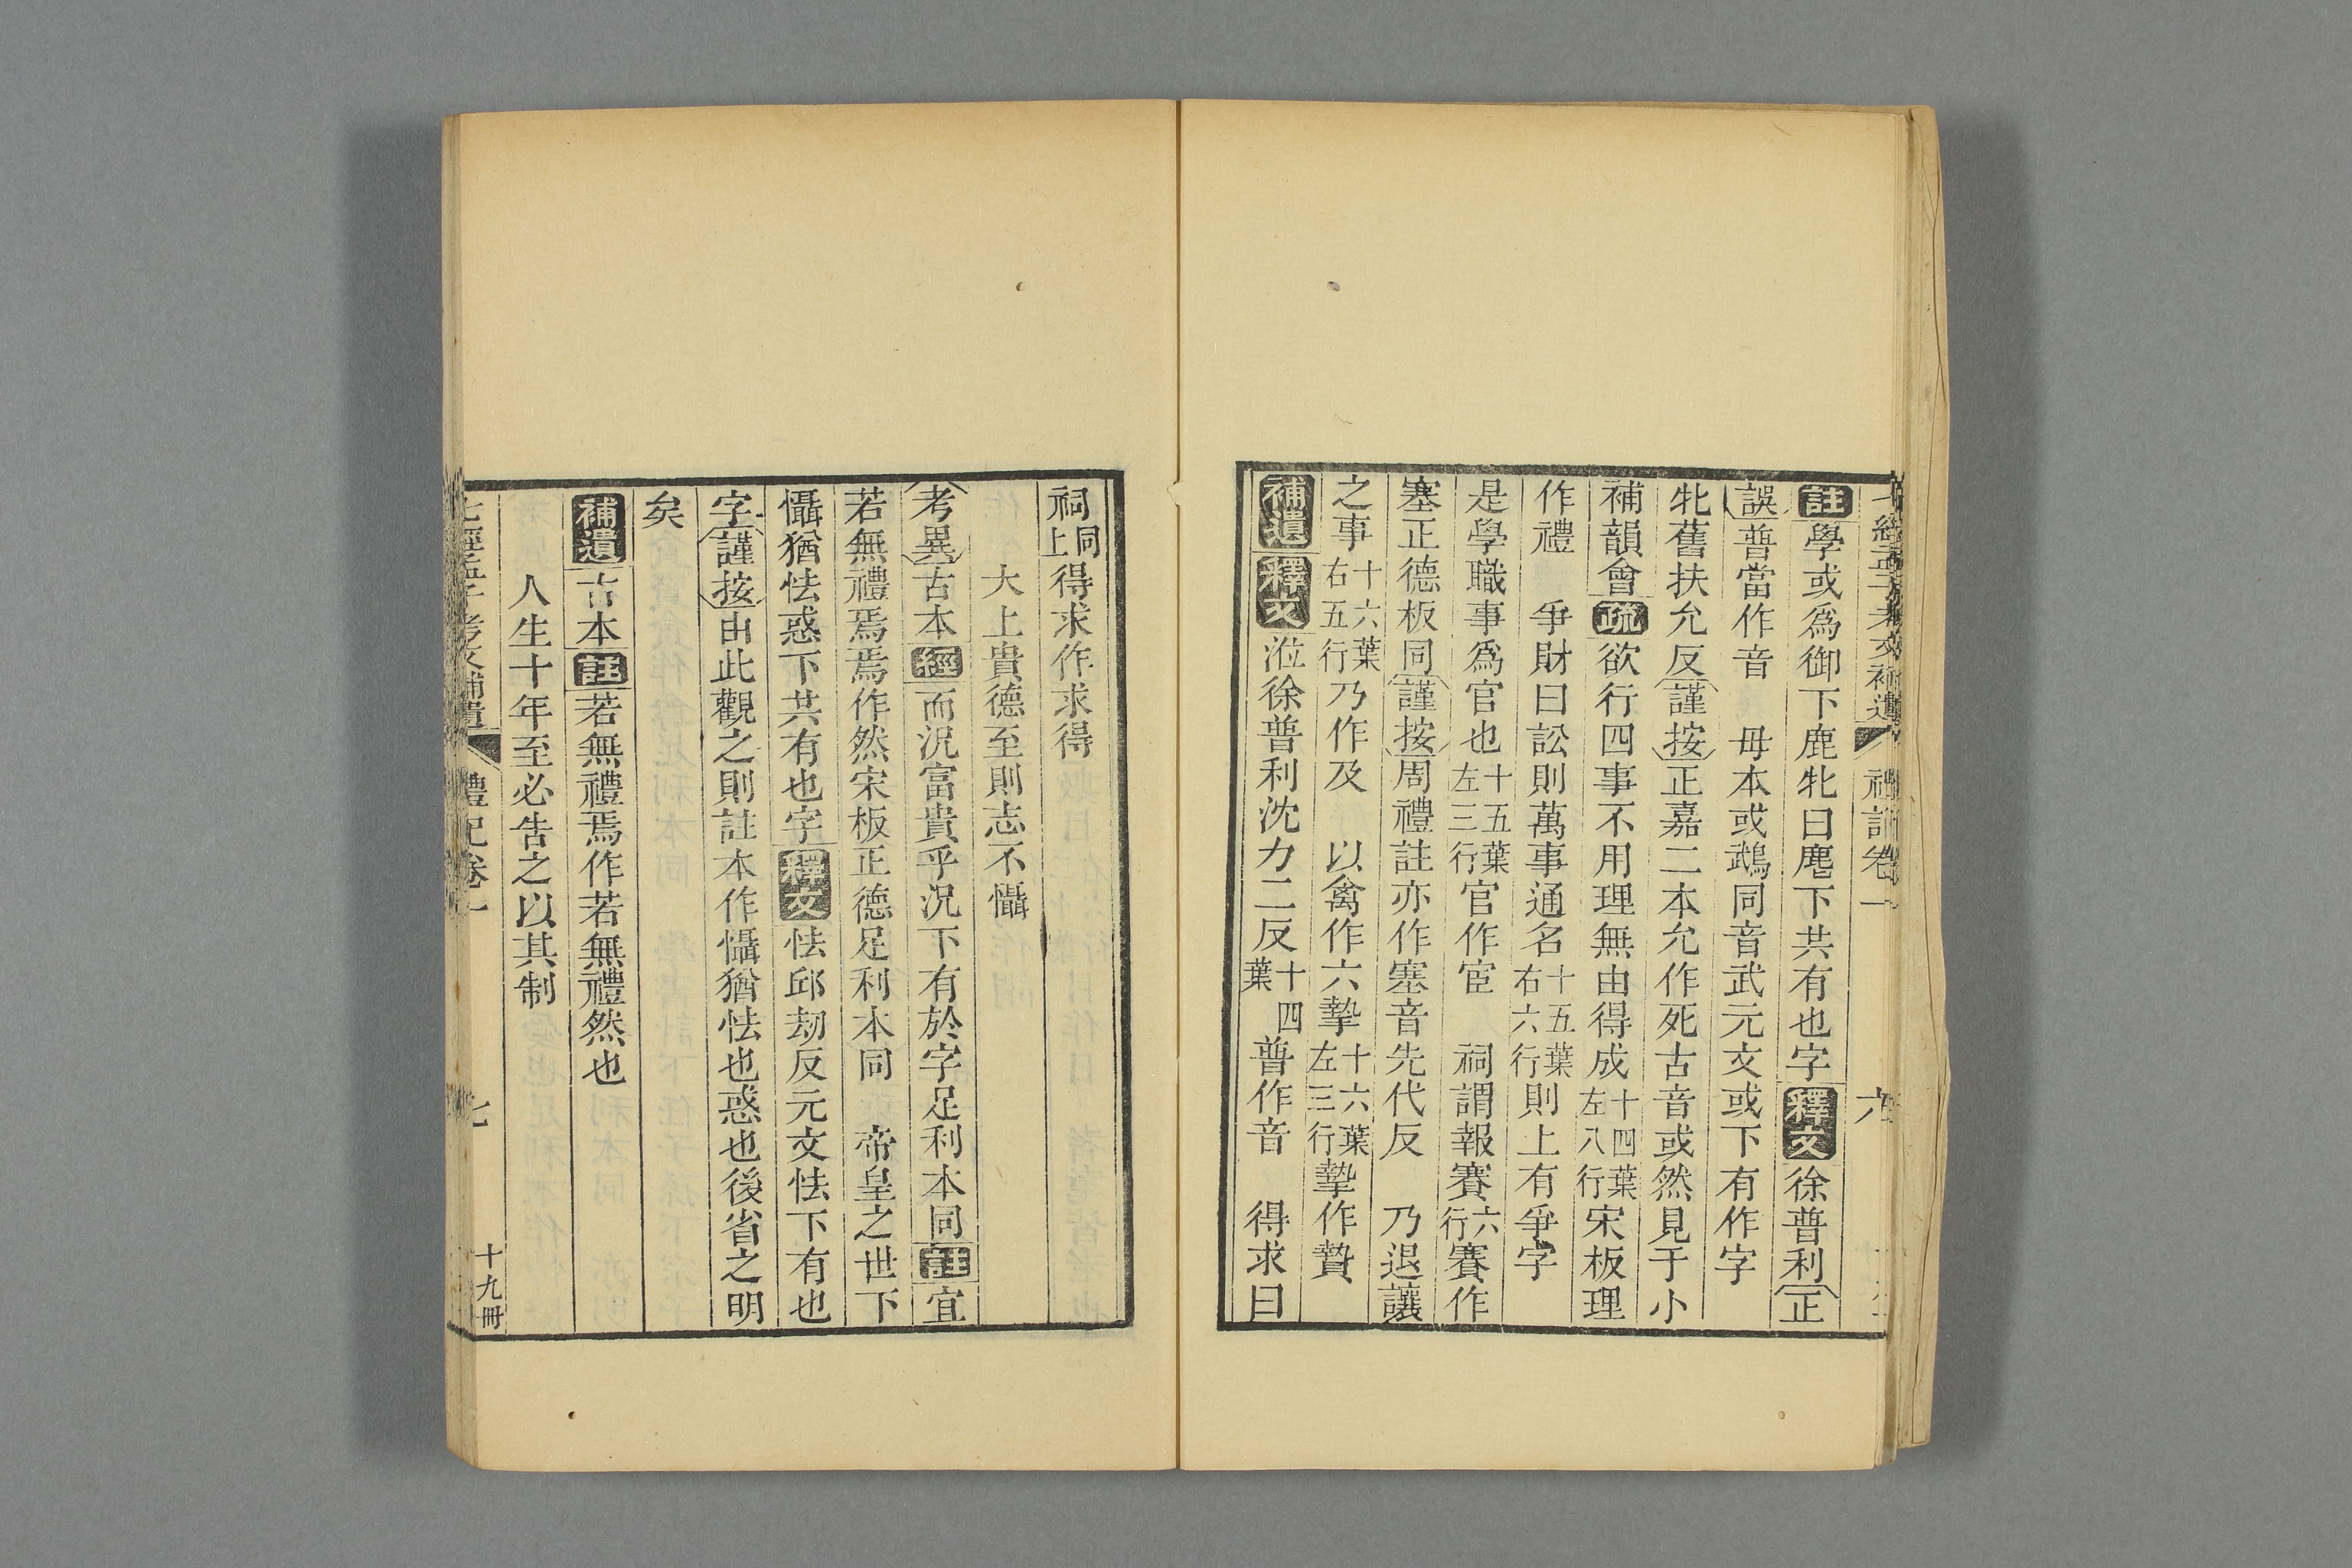 七經孟子考文補遺 禮記卷一 六
註學或爲御下鹿牝曰麀下共有也字釋文徐普利正
誤普當作音 毋本或鵡同音武元文或下有作字
牝舊扶允反謹按正嘉二本允作死古音或然見于小
補韻會疏欲行四事不用理無由得成十四葉左八行宋板理
作禮 爭財曰訟則萬事通名十五葉右六行則上有爭字
是學職事爲官也十五葉左三行官作宦 祠謂報賽六行賽作
塞正德板同謹按周禮註亦作塞音先代反 乃退讓
之事十六葉右五行乃作及 以禽作六摯十六葉左三行摯作贄
補遺釋文涖徐普利沈力二反十四葉普作音 得求曰
祠同上得求作求得
大上貴德至則志不懾
考異古本經而況富貴乎況下有於字足利本同註宜
若無禮焉焉作然宋板正德足利本同 帝皇之世下
懾猶怯惑下共有也字釋文怯邱劫反元文怯下有也
字謹按由此觀之則註本作懾猶怯也惑也後省之明
矣
補遺古本註若無禮焉作若無禮然也
人生十年至必告之以其制
七經孟子考文補遺 禮記卷一 七 十九冊